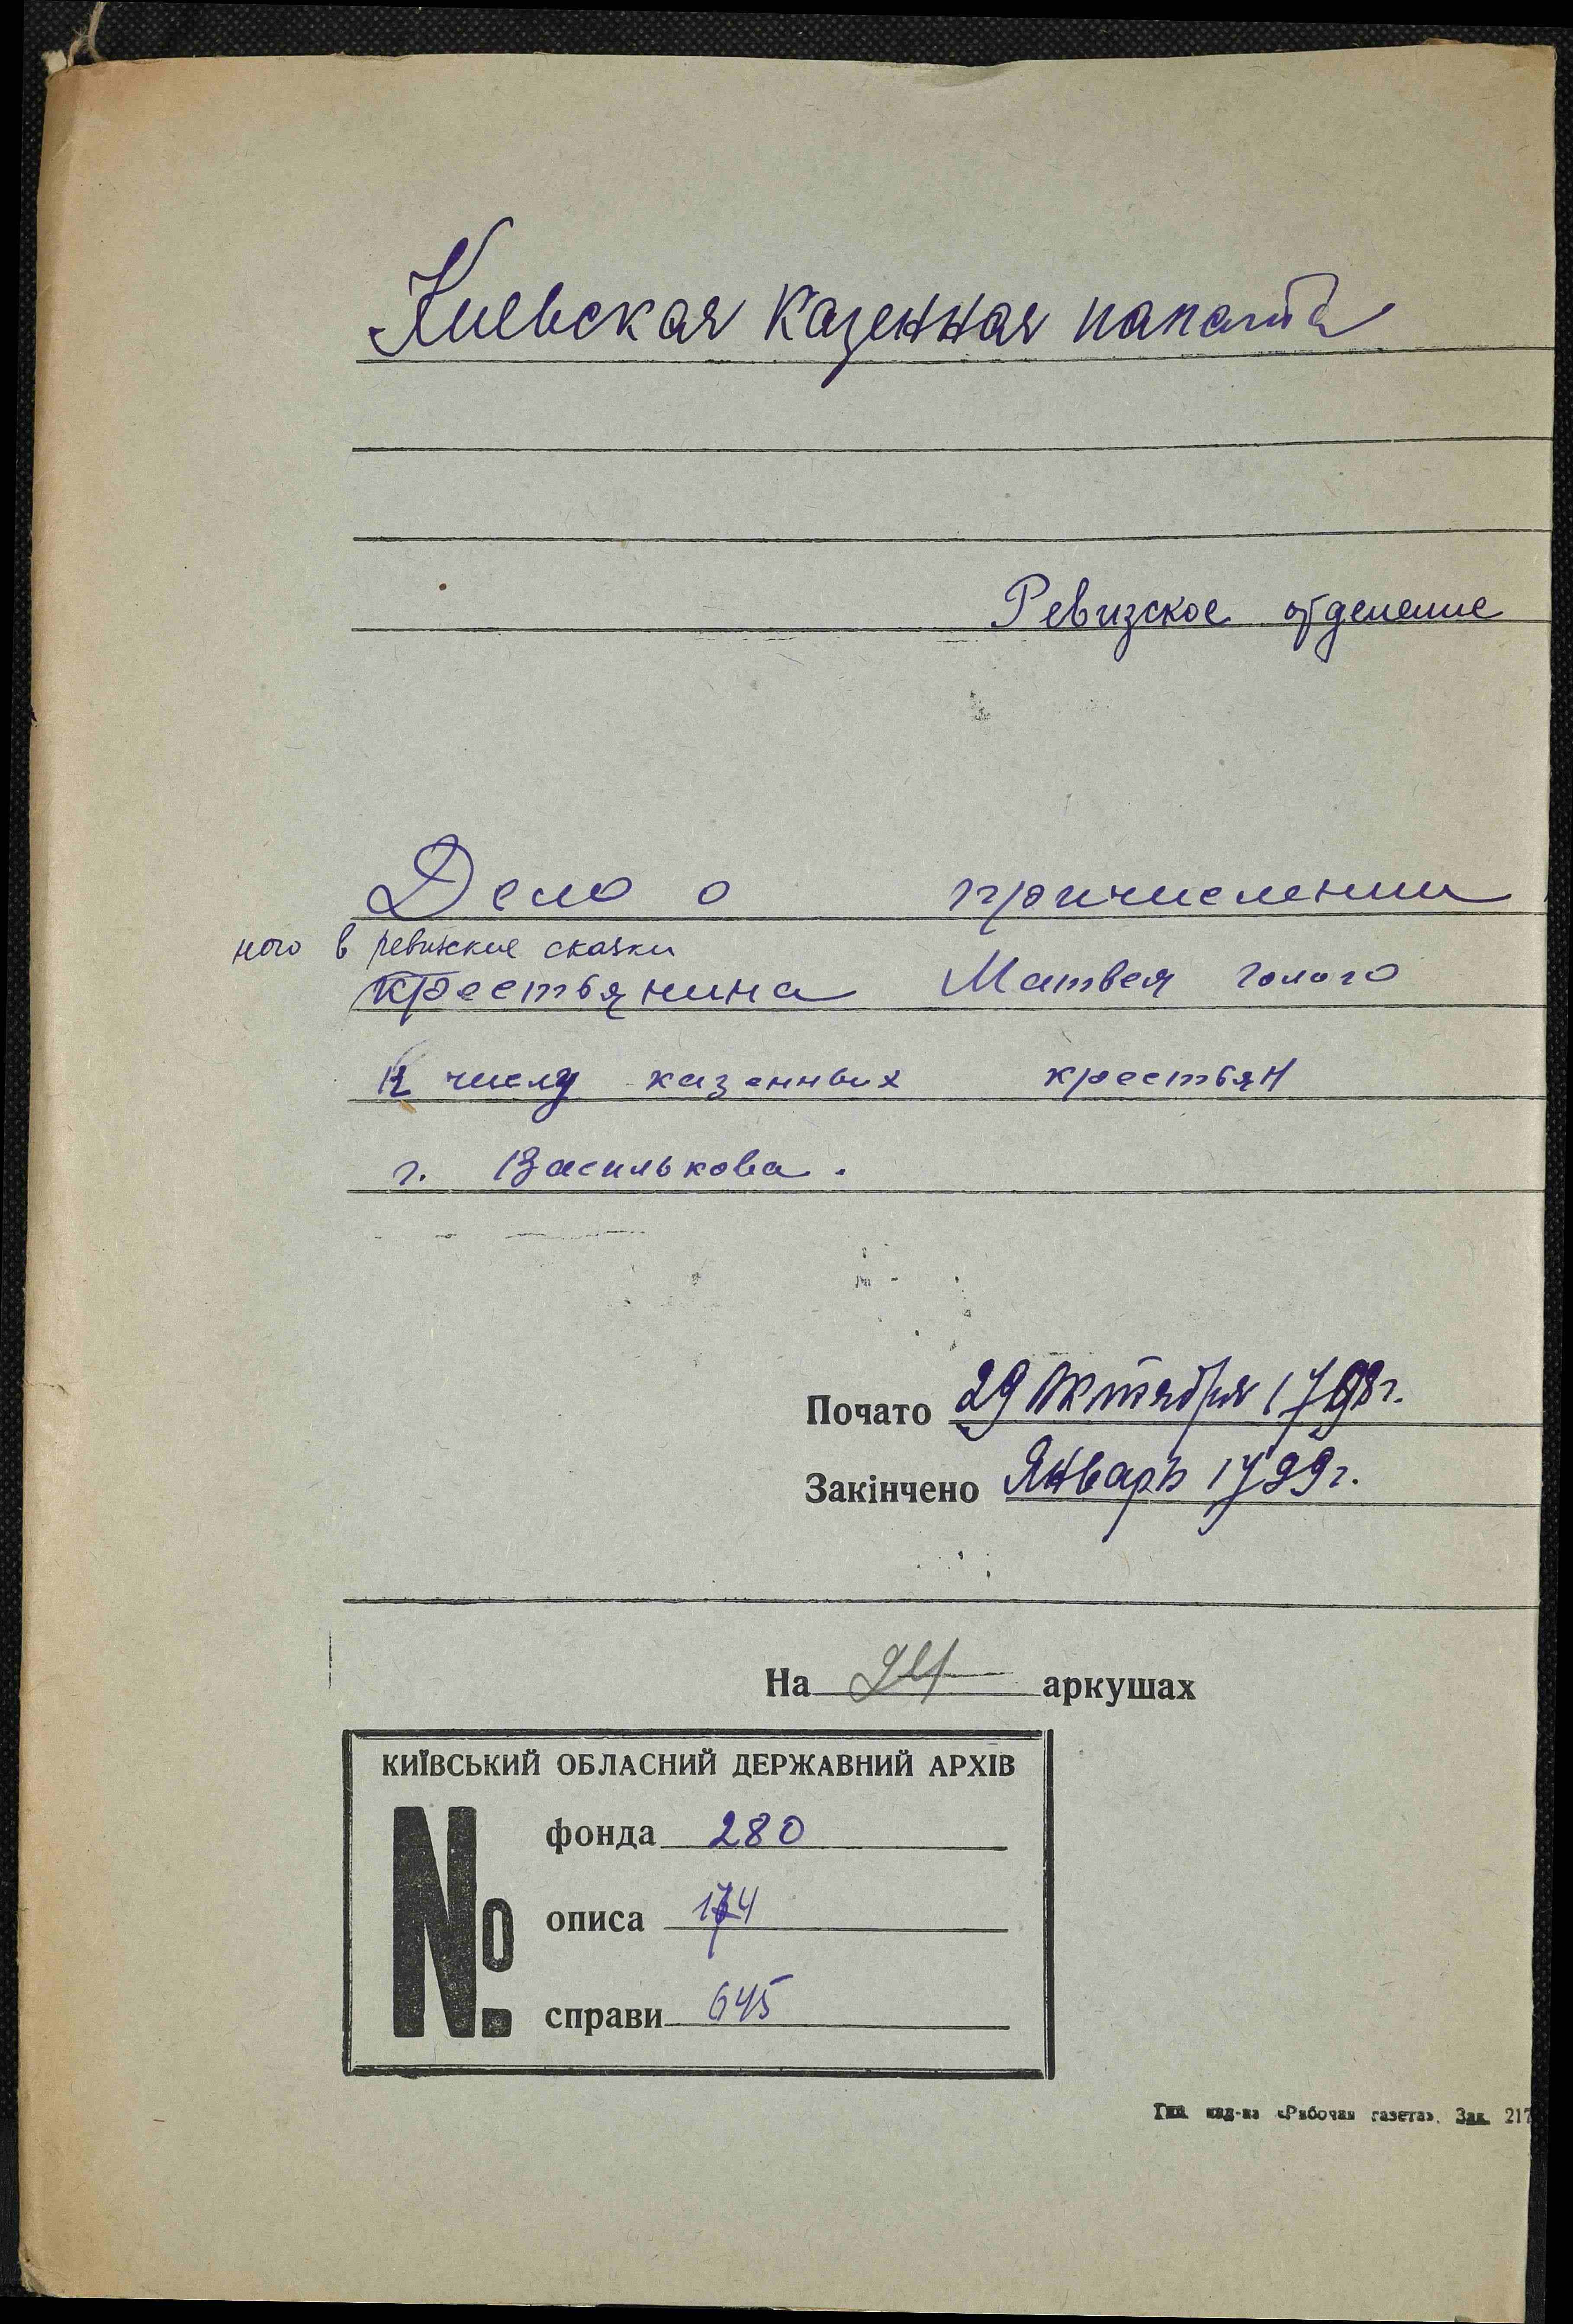 Киевская казенная палата
Ревизское отделение
Дело о причислении
ного в ревизские сказки
крестьянина Матвея Голого
к числу казенных крестьян
г. Василькова.
Почато 29 октября 1798 г.
Закінчено Январь 1799 г.
На аркушах
КИЇВСЬКИЙ ОБЛАСНИЙ ДЕРЖАВНИЙ АРХІВ
№
фонда 280
описа 174
справи 645
Тип. изд-ва «Рабочая газета». Зак. 217